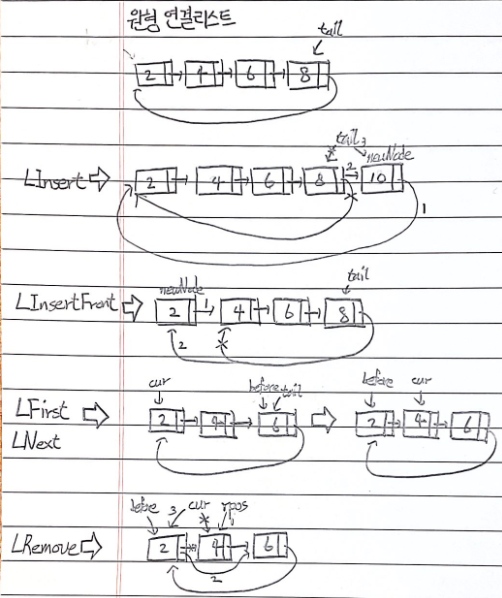 원형 연결리스트
tail
2 4 6 8
tail 3 newNode
LInsert 2 4 6 8 2 10
1
newNode tail
LInsertFront 2 1 4 6 8
2
cur before tail before cur
LFirst 2 4 6 2 4 6
LNext
before 3 cur rpos
LRemove 2 4 6
2